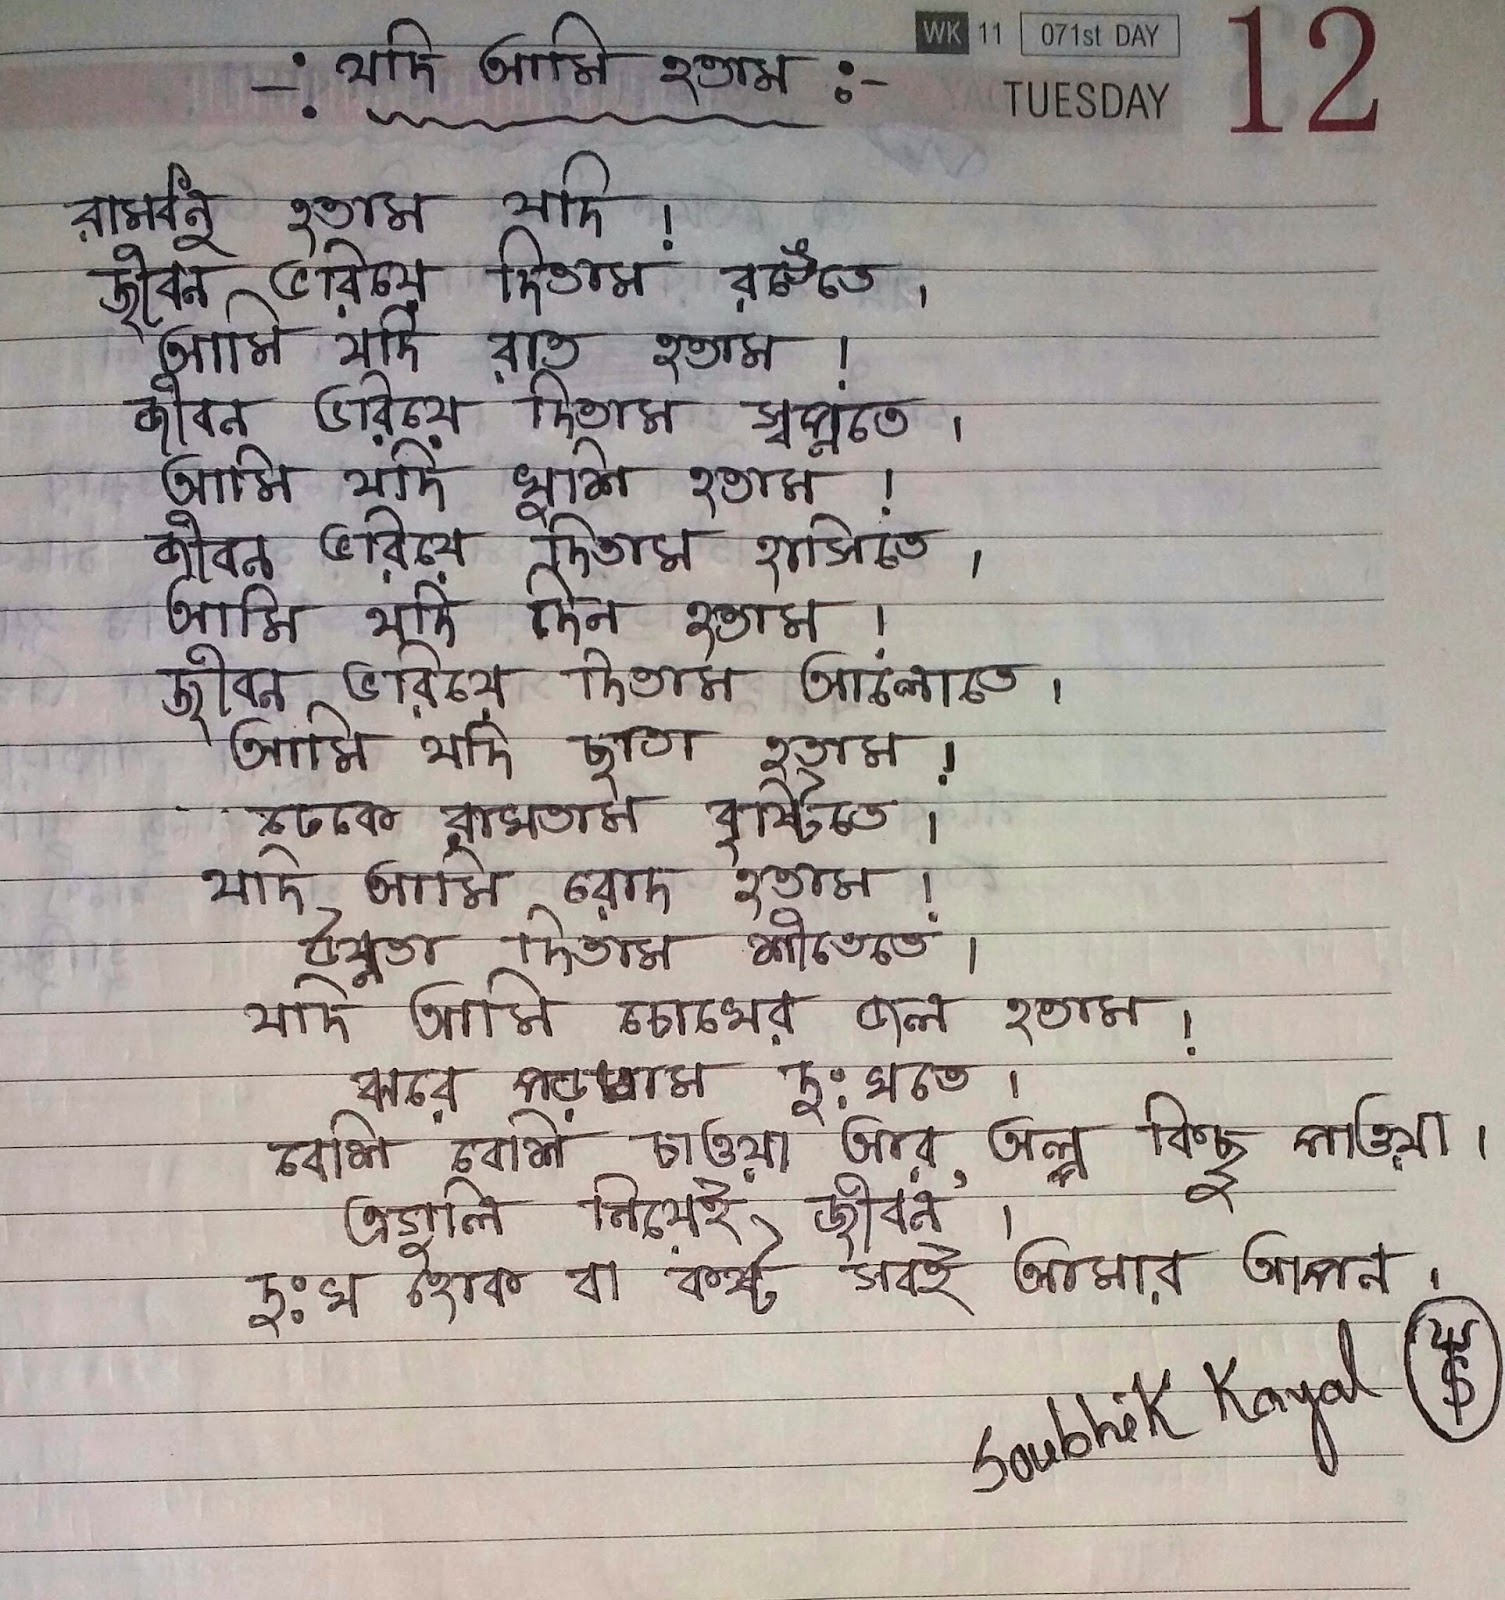 WK 11 071st DAY 12
TUESDAY
-: যদি আমি হতাম :-
রামধনু হতাম যদি !
জীবন ভরিয়ে দিতাম রঙেতে ।
আমি যদি রাত হতাম !
জীবন ভরিয়ে দিতাম স্বপ্নতে ।
আমি যদি খুশি হতাম !
জীবন ভরিয়ে দিতাম হাসিতে ।
আমি যদি দিন হতাম !
জীবন ভরিয়ে দিতাম আলোতে ।
আমি যদি ছাতা হতাম !
ঢেকে রাখতাম বৃষ্টিতে ।
যদি আমি রোদ হতাম !
উষ্ণতা দিতাম শীতেতে ।
যদি আমি চোখের জল হতাম !
ঝরে পড়তাম দুঃখতে ।
বেশি বেশি চাওয়া আর, অল্প কিছু পাওয়া ।
এগুলি নিয়েই জীবন ।
দুঃখ হোক বা কষ্ট সবই আমার আপন ।
Soubhik Kayal